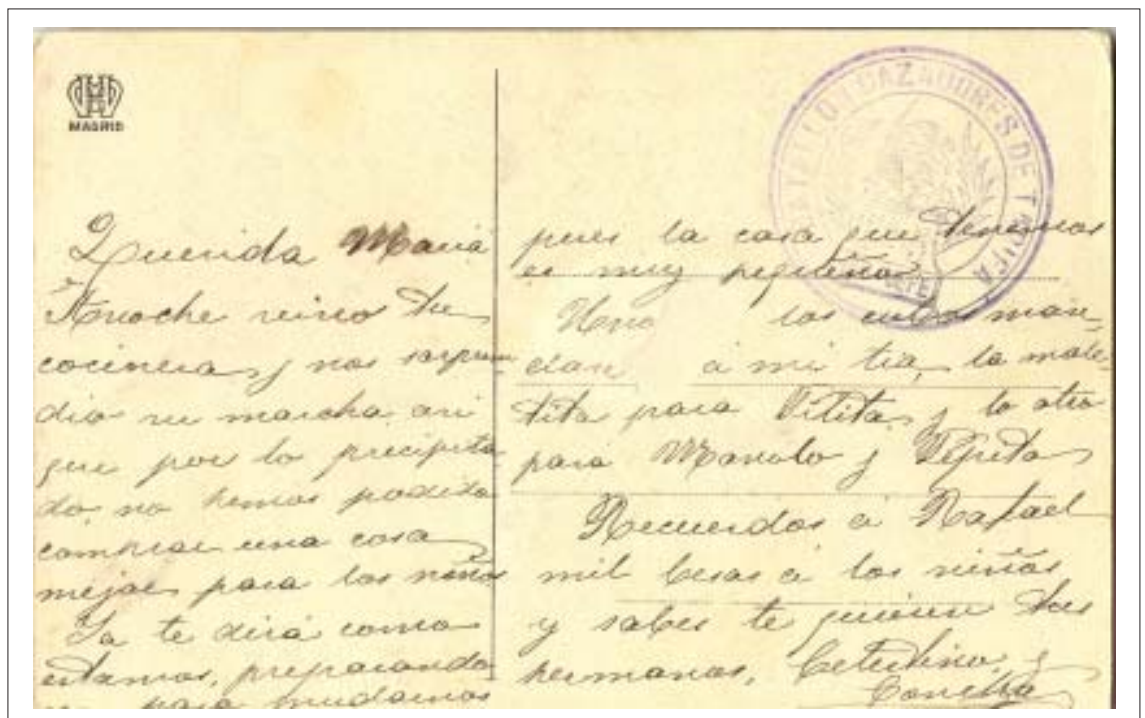 MADRID
BATALLON CAZADORES DE TARIFA
Querida Maria
Anoche vino tu
cocinera y nos sorpren
dio su marcha asi
que por lo precipita
do, no hemos podido
comprar una cosa
mejor para los niños
Ya te dirá como
estamos, preparando
para mudarnos
pues la casa que tenemos
es muy pequeña
los cubos man
dan a mi tia, la male
tita para Pitita, y lo otro
para Manolo y Pepita
Recuerdos á Rafael
mil besos á los niños
y sabes te quieren tus
hermanos,
Concha